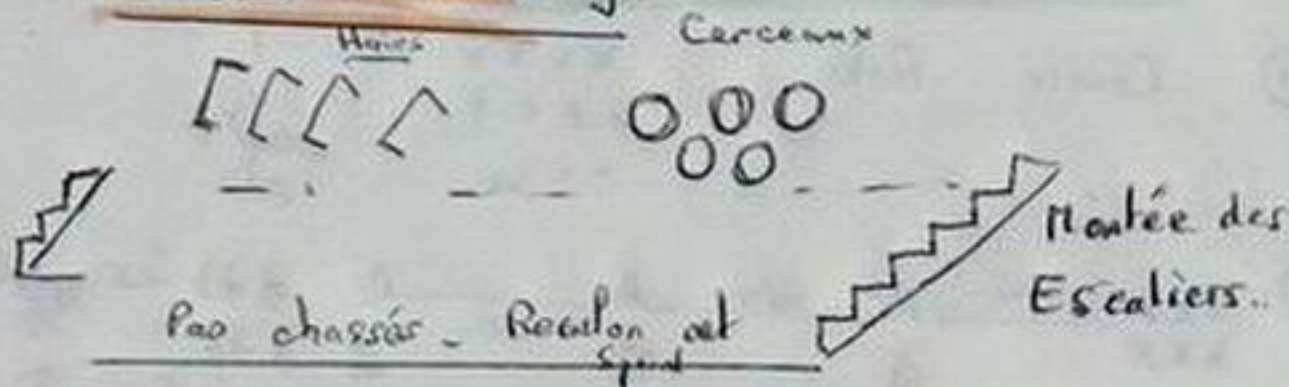 Cerceaux
Haies
Montée des
Escaliers..
Pas chassés - Reculon et
Sprint